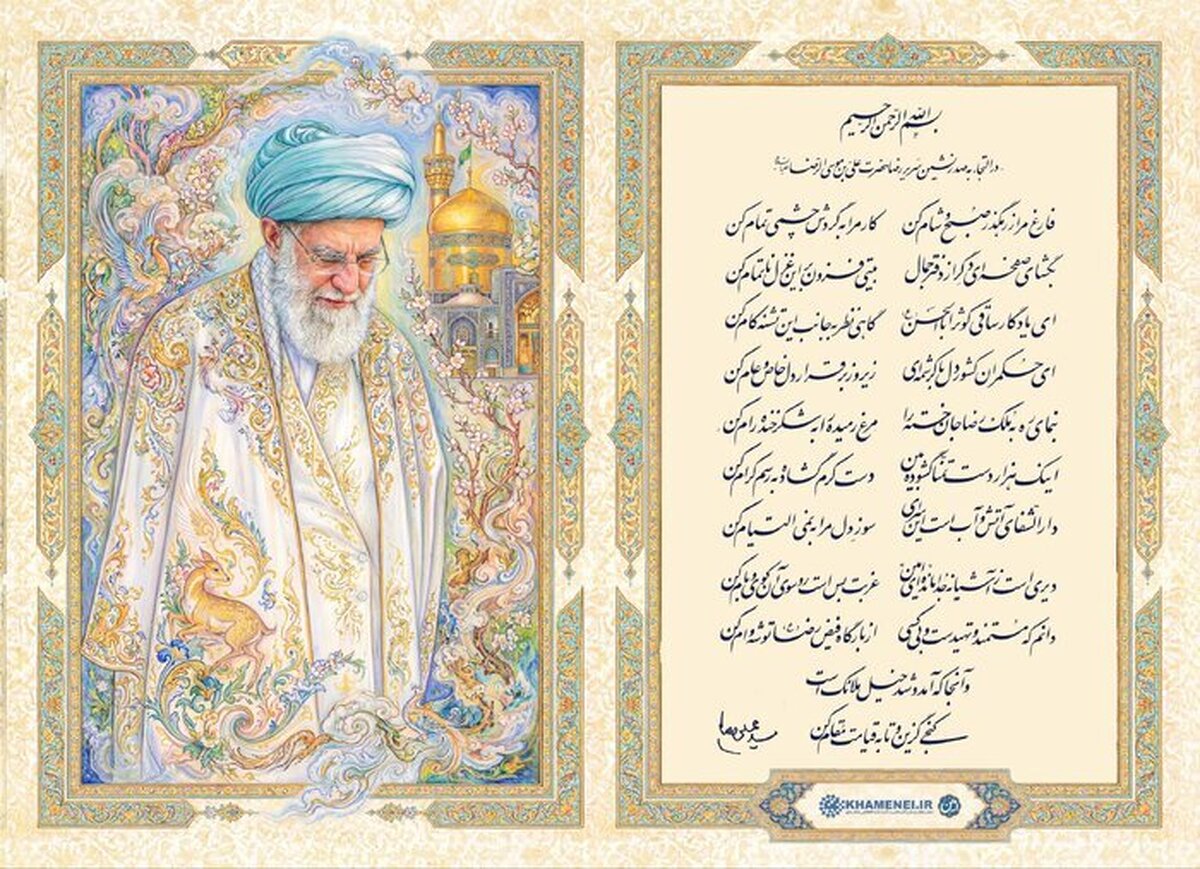 بسم الله الرحمن الرحیم
در التجاء به صدرنشین سریر رضا حضرت علی بن موسی الرضا
فارغ مرا ز رهگذر صبح و شام کن کار مرا به گردش چشمی تمام کن
بگشای صفحه‌ای دگر از دفتر جمال بیتی فزون بر این غزل ناتمام کن
ای یادگار ساقی کوثر اباالحسن گاهی نظر به جانب این تشنه کام کن
ای حکمران کشور دل با کرشمه‌ای زیر و زبر قرار دل خاص و عام کن
بنمای ره به ملک رضا جان خسته را مرغ رمیده را به شکرخنده رام کن
اینک هزار دست تمنا گشوده بین دست کرم گشاده به رسم کرام کن
دارالشفای آتش و آب است این سرای سوز دل مرا به نمی التیام کن
دیری است ز آشیانه جدا مانده‌ای امین غربت بس است رو سوی آن کوی و بام کن
دانم که مستمند و تهیدست و بی کسی از بارگاه فیض رضا توشه وام کن
و آنجا که آمد و شد خیل ملائک است
کنجی گزین و تا به قیامت مقام کن
KHAMENEI.IR